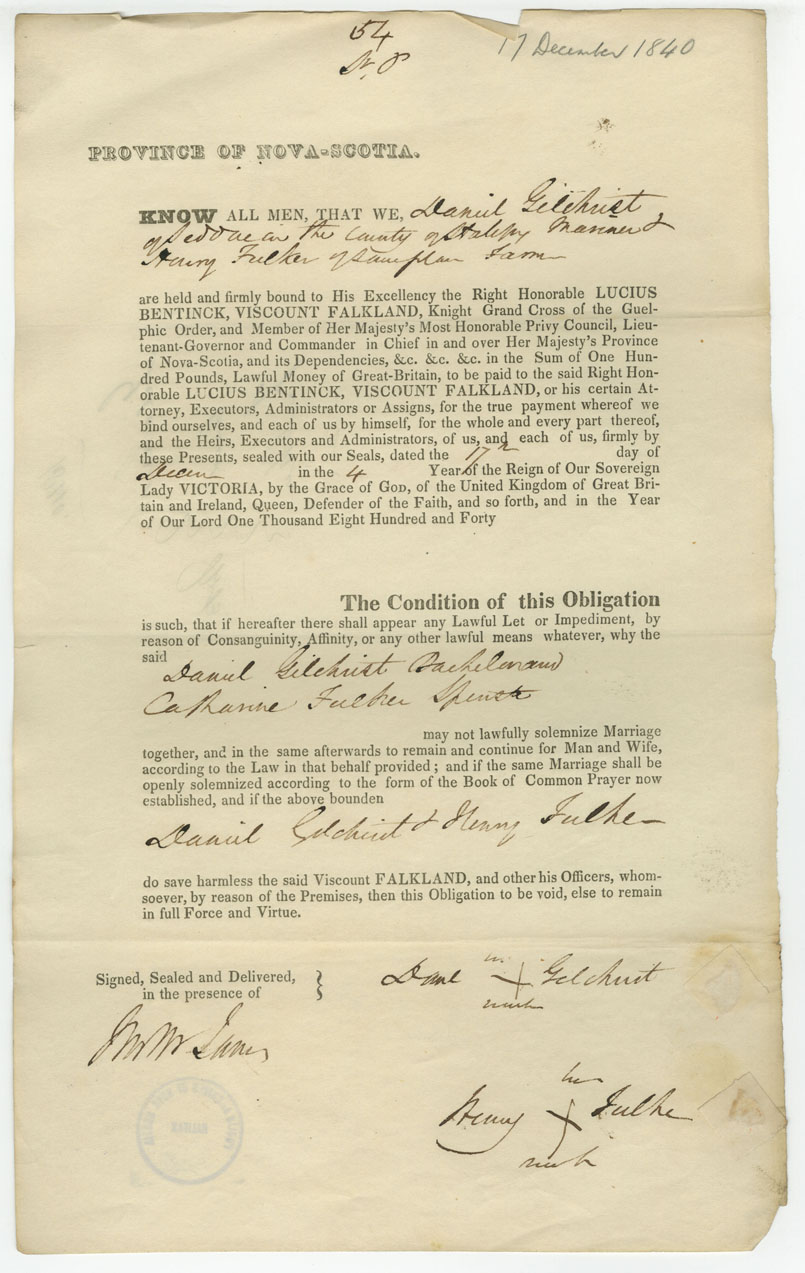 54
17 December 1840
PROVINCE OF NOVA-SCOTIA.
KNOW ALL MEN, THAT WE, Daniel Gilchrist
in the County of Mariner &
Henry Fulker of Farmer
are held and firmly bound to His Excellency the Right Honorable LUCIUS
BENTINCK, VISCOUNT FALKLAND, Knight Grand Cross of the Guel-
phic Order, and Member of Her Majesty's Most Honorable Privy Council, Lieu-
tenant-Governor and Commander in Chief in and over Her Majesty's Province
of Nova-Scotia, and its Dependencies, &c. &c. &c. in the Sum of One Hun-
dred Pounds, Lawful Money of Great-Britain, to be paid to the said Right Hon-
orable LUCIUS BENTINCK, VISCOUNT FALKLAND, or his certain At-
torney, Executors, Administrators or Assigns, for the true payment whereof we
bind ourselves, and each of us by himself, for the whole and every part thereof,
and the Heirs, Executors and Administrators, of us, and each of us, firmly by
these Presents, sealed with our Seals, dated the 17th day of
Decem in the 4 Year of the Reign of Our Sovereign
Lady VICTORIA, by the Grace of GOD, of the United Kingdom of Great Bri-
tain and Ireland, Queen, Defender of the Faith, and so forth, and in the Year
of Our Lord One Thousand Eight Hundred and Forty
The Condition of this Obligation
is such, that if hereafter there shall appear any Lawful Let or Impediment, by
reason of Consanguinity, Affinity, or any other lawful means whatever, why the
said
Daniel Gilchrist Bachelor and
Catharine Fulker Spinster
may not lawfully solemnize Marriage
together, and in the same afterwards to remain and continue for Man and Wife,
according to the Law in that behalf provided; and if the same Marriage shall be
openly solemnized according to the form of the Book of Common Prayer now
established, and if the above bounden
Daniel Gilchrist & Henry Fulker
do save harmless the said Viscount FALKLAND, and other his Officers, whom-
soever, by reason of the Premises, then this Obligation to be void, else to remain
in full Force and Virtue.
Signed, Sealed and Delivered,
in the presence of
his
Danl X Gilchrist
mark
his
Henry X Fulker
mark